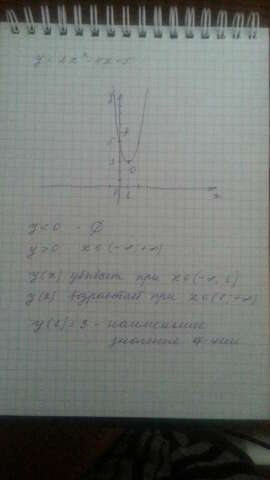 y = 2x² - 4x + 5
y
5
3
0 1
x
y < 0 - ∅
y > 0 x ∈ (-∞; +∞)
y(x) убывает при x ∈ (-∞, 1)
y(x) возрастает при x ∈ (1; +∞)
y(1) = 3 - наименьшее
значение ф-ции